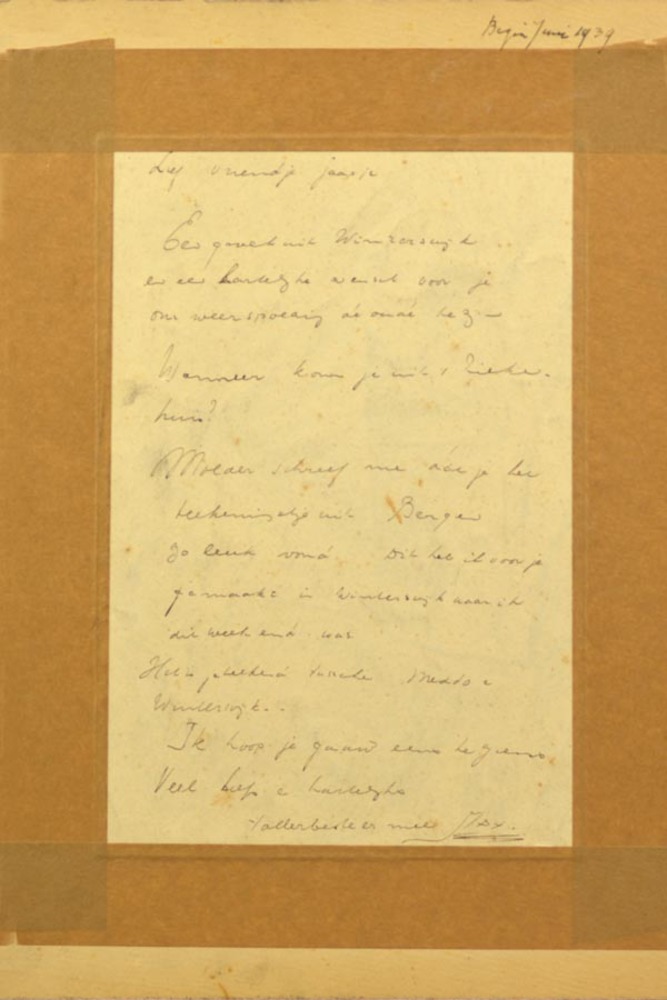 Begin Juni 1939
Lief vriendje Jaapje
Een groet uit Winterswijk
en een hartelijke wensch voor je
om weer spoedig de oude te zijn
Wanneer kom je uit 't Zieken-
huis?
Moeder schreef me dat je het
teekeningetje uit Bergen
zo leuk vond. Dit heb ik voor je
gemaakt in Winterswijk waar ik
dit weekend was
Het is geteekend tussche Meddo e
Winterswijk.
Ik hoop je gauw eens te ziens
Veel liefs e hartelijke
't allerbeste er mee